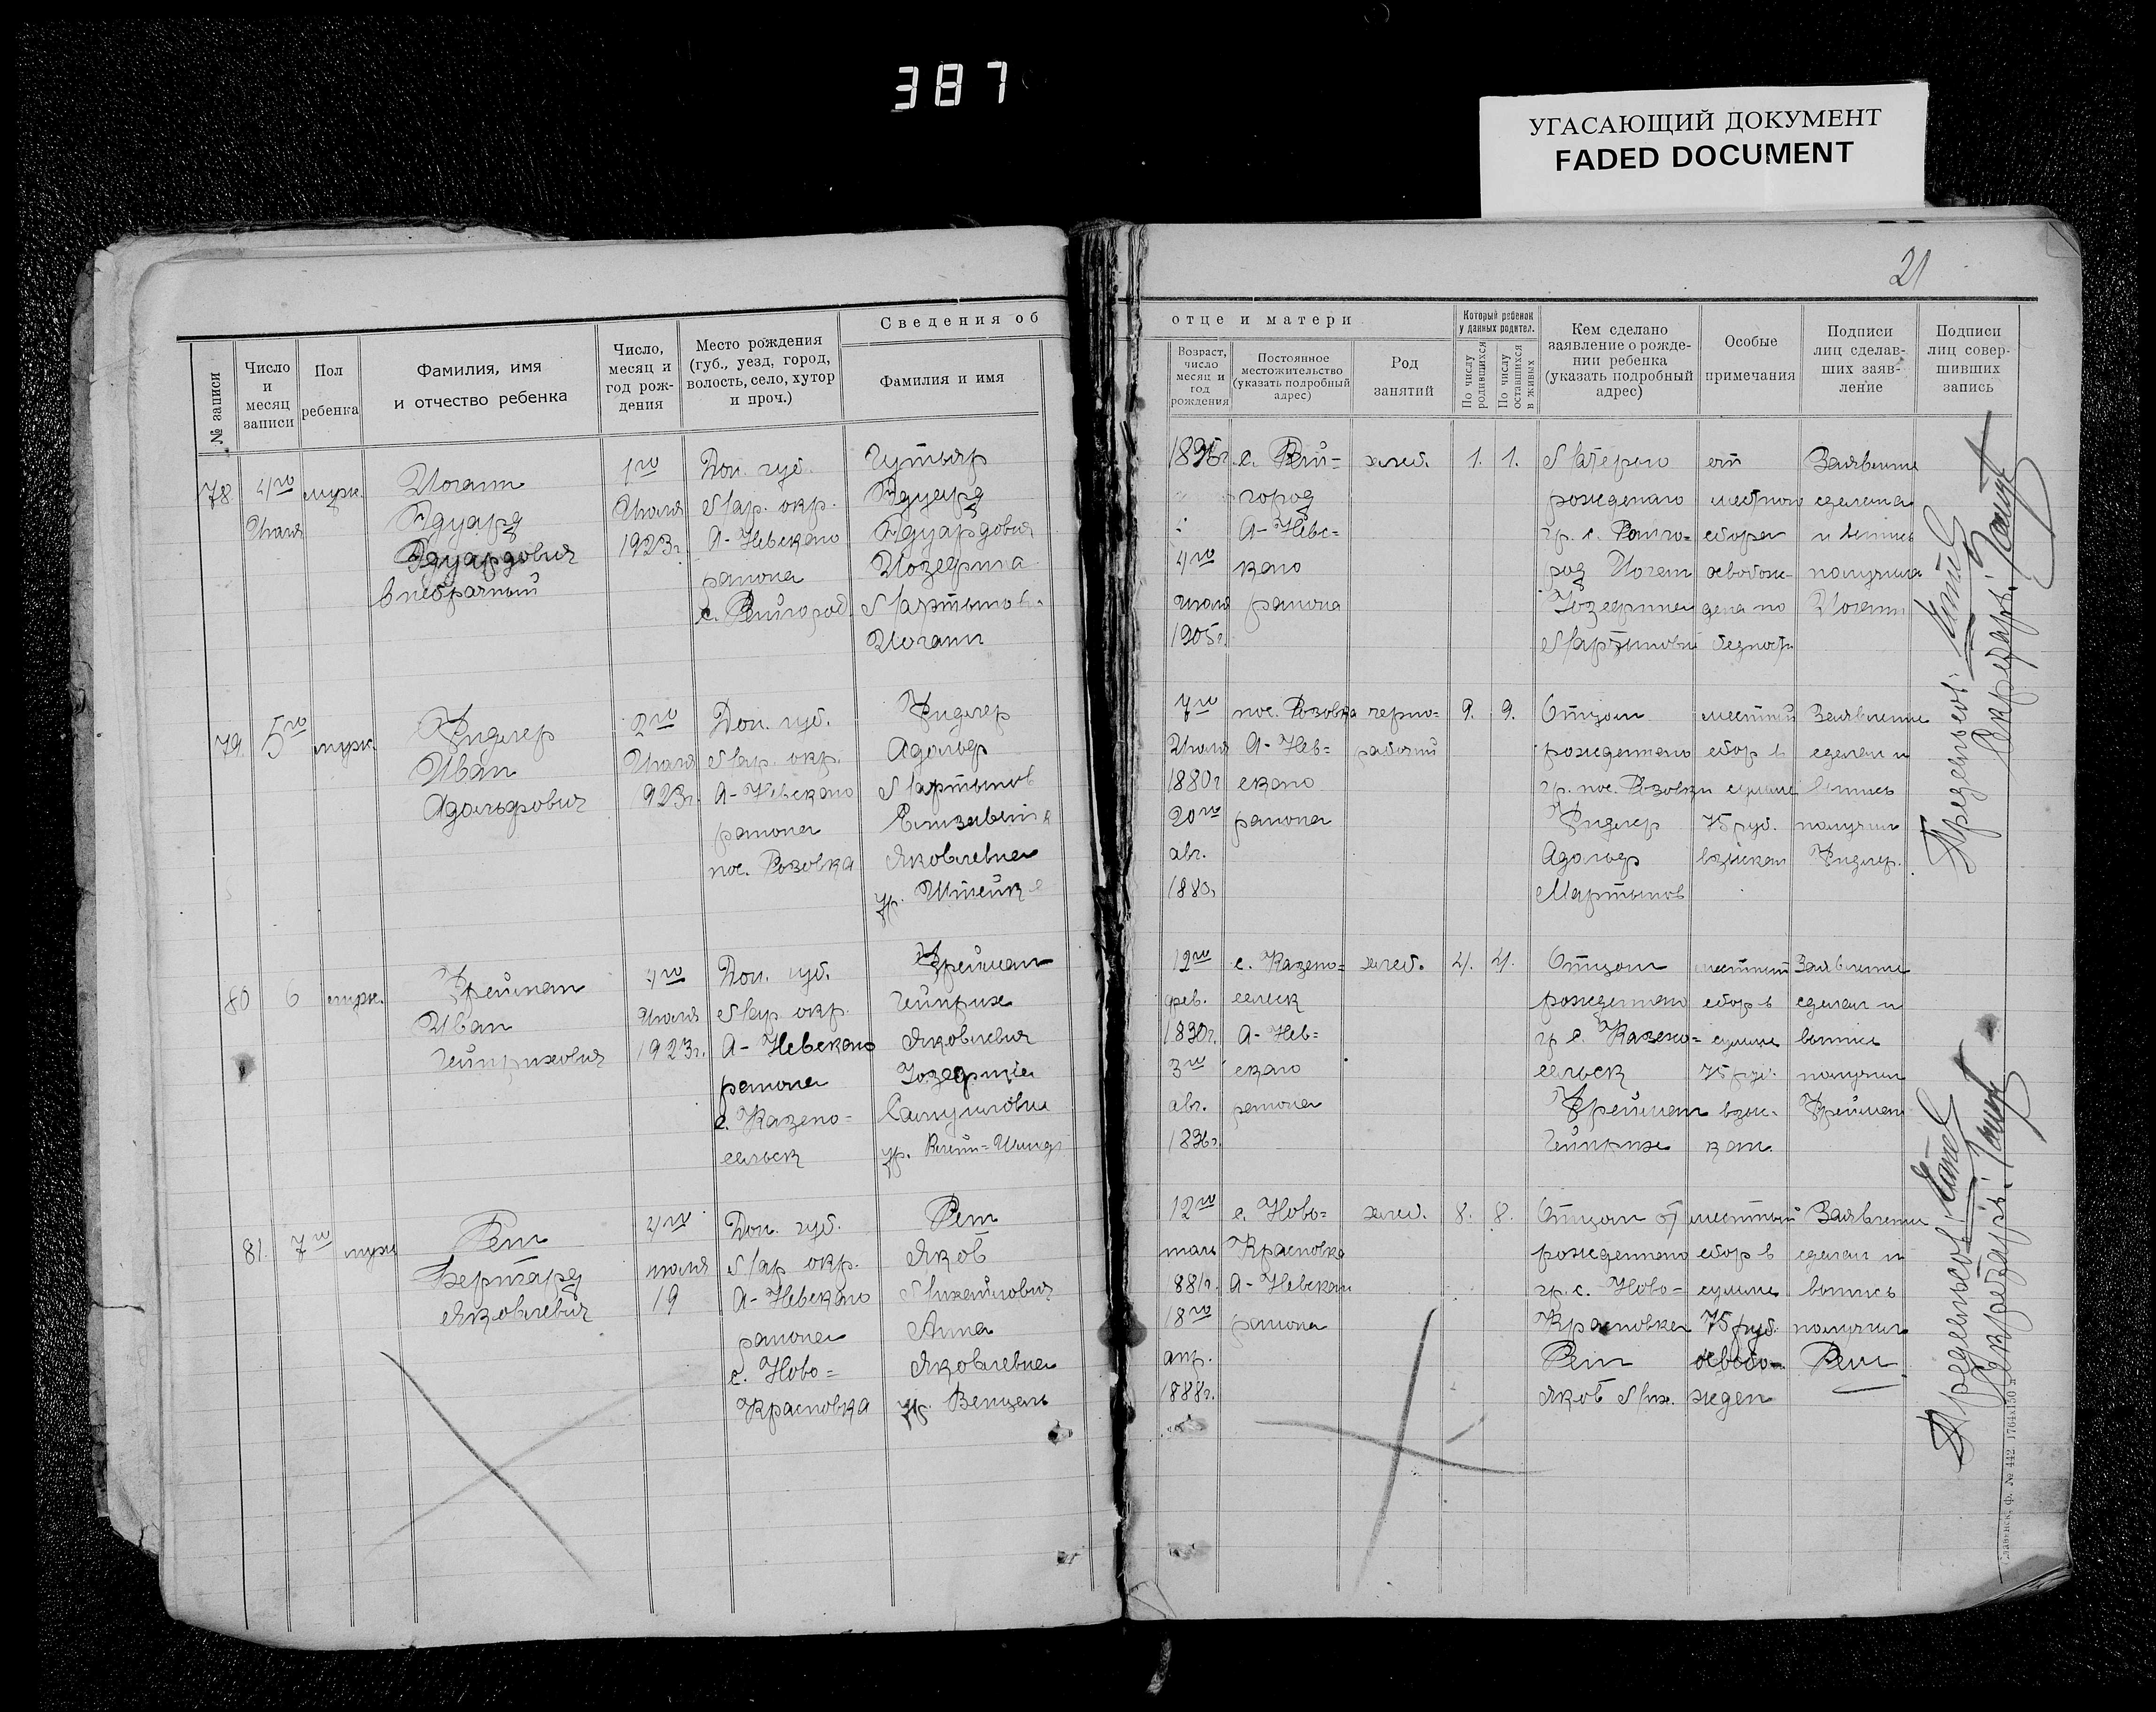 387
УГАСАЮЩИЙ ДОКУМЕНТ
FADED DOCUMENT
21
Сведения об
отце и матери
№ записи
Число
и
месяц
записи
Пол
ребенка
Фамилия, имя
и отчество ребенка
Число,
месяц и
год рож-
дения
Место рождения
(губ., уезд, город,
волость, село, хутор
и проч.)
Фамилия и имя
Возраст,
число
месяц и
год
рождения
Постоянное
местожительство
(указать подробный
адрес)
Род
занятий
Который ребенок
у данных родител.
По числу
родившихся
По числу
оставшихся
в живых
Кем сделано
заявление о рожде-
нии ребенка
(указать подробный
адрес)
Особые
примечания
Подписи
лиц сделав-
ших заяв-
ление
Подписи
лиц совер-
шивших
запись
78
4го
Июля
муж.
Иоганн
Эдуард
Эдуардович
внебрачный
1го
Июля
1923г.
Дон. губ.
Мар. окр.
А-Невского
района
с. Рейнгород
Эдуард
Эдуардович
Иозефина
Мартынов
Иоганн
4го
Июля
1905г.
с. Рейн=
город
А-Невс=
кого
района
хлеб.
1.
1.
Матерью
рожденного
гр. с. Рейнго=
род Иоган
Иозефиной
Мартыновой
от
местного
сбора
освобож-
дена по
бедност.
Заявление
сделала
и выпись
получила
Иоганн
79
5го
муж.
Фидлер
Иван
Адольфович
2го
Июля
1923г.
Дон. губ.
Мар. окр.
А-Невского
района
пос. Розовка
Фидлер
Адольф
Мартынов
Елизавета
Яковлевна
ур. Штейнке
7го
Июля
1880г
20го
авг.
1880г
пос. Розовка
А-Нев=
ского
района
черно=
рабочий
9.
9.
Отцом
рожденного
гр. пос. Розовки
Фидлер
Адольф
Мартынов
местный
сбор в
сумме
75 руб.
взыскан
Заявление
сделал и
выпись
получил
Фидлер.
80
6
муж.
Фрейман
Иван
Гейнрихович
4го
Июля
1923г.
Дон. губ.
Мар. окр.
А-Невского
района
с. Казено=
сельск
Фрейман
Гейнрих
Яковлевич
Иозефина
Самуиловна
12го
фев.
3го
авг.
с. Казено=
сельск
А-Нев=
ского
района
хлеб.
4.
4.
Отцом
рожденного
гр с. Казено=
сельск
Фрейман
Гейнрих
местный
сбор в
сумме
75 руб.
взыс-
кан.
Заявление
сделал и
выпись
получил
Фрейман
81.
7го
муж
Рет
Бернгард
Яковлевич
4го
июля
19
Дон. губ.
Мар окр.
А-Невского
района
с. Ново=
Красновка
Рет
Яков
Михайлович
Анна
Яковлевна
ур. Венцель
12го
881г.
18го
апр.
1888г.
с. Ново=
Красновка
А-Невского
района
хлеб.
8.
8.
Отцом
рожденного
гр. с. Ново=
Красновка
Рет
Яков Мих.
местный
сбор в
сумме
75 руб.
освобо-
жден
Заявление
сделал и
выпись
получил
Рет
Секретарь:
Секретарь:
Ф. № 442.